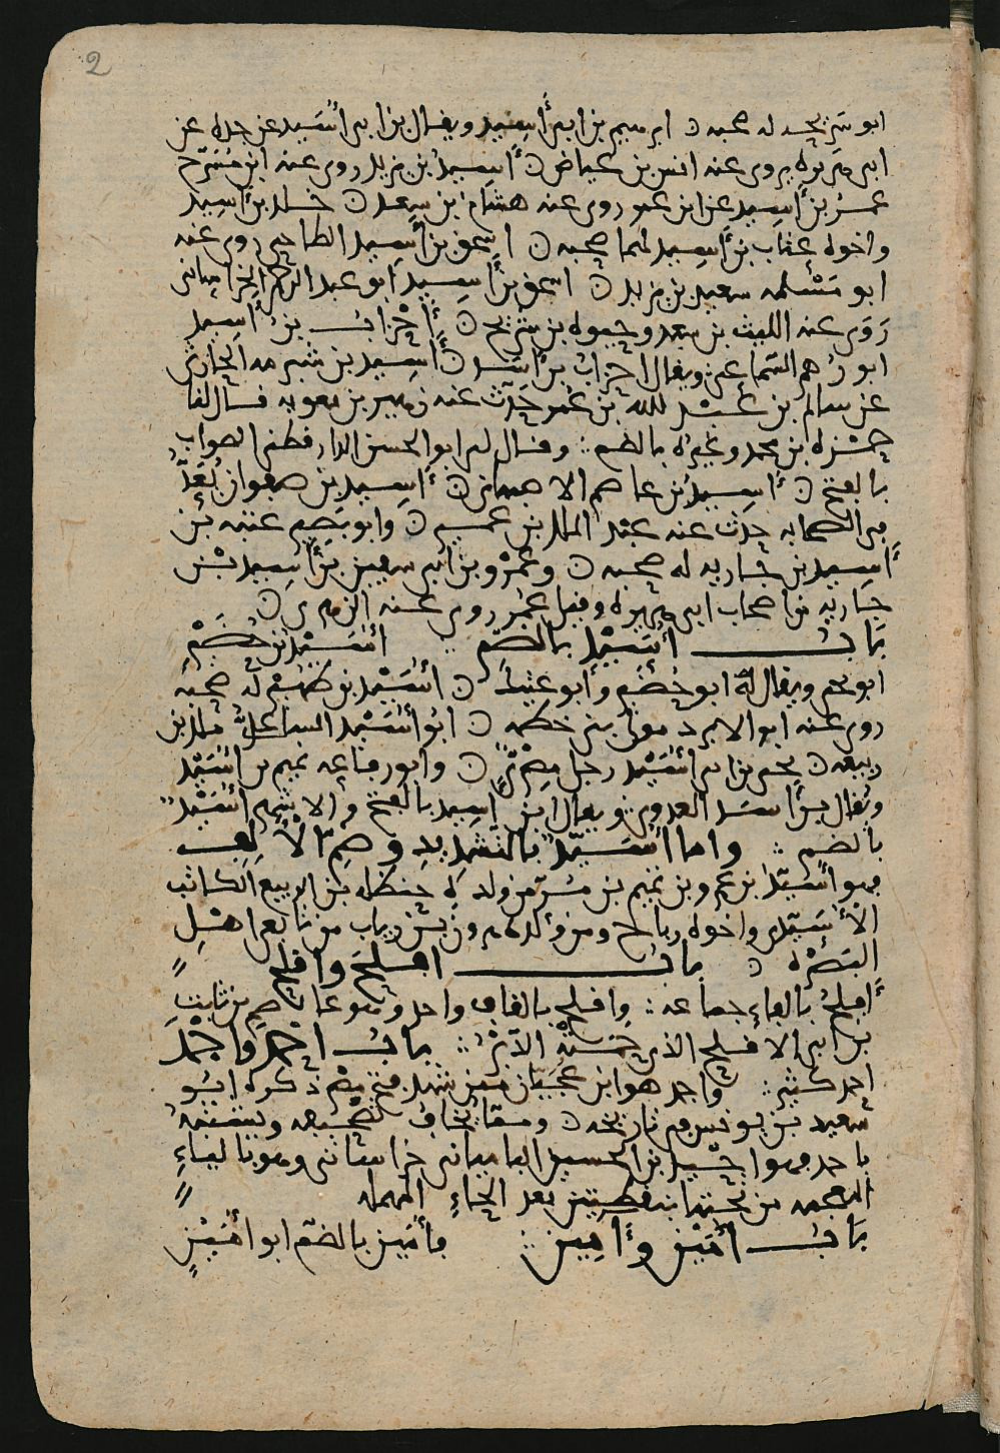 2
ابو سريحه له صحبه ابرهيم بن ابي أَسِيد ويقال بن ابي أُسَيد عن جده عن
ابي هريره يروي عنه انس بن عياض أَسِيد بن يزيد روى عنه ابن مسرح
عمر بن أَسِيد عن ابن عمر روى عنه هشام بن سعد خلد بن أَسِيد
واخوه عتاب بن أَسِيد لهما صحبه اسحق بن أَسِيد الطاحي روى عنه
ابو مَسْلمه سعيد بن يزيد اسحق بن أَسِيد ابو عبد الرحمن الخراساني
رَوَى عنه الليث بن سعد وحيوه بن شريح أَحْزاب بن أَسِيد
ابو رُهم السَّماعي ويقال احزاب بن اسد أَسِيد بن شبرمه الحارثي
عن سالم بن عبد الله بن عمر حَدّث عنه زهير بن معويه قال لنا
حمزه بن محمد وغيره بالضم وقال لي ابو الحسن الدارقطني الصواب
بالفتح أَسِيد بن عاصم الاصبهاني أَسِيد بن صفوان يُعَدُّ
في الصحابه حدث عنه عبد الملك بن عمير وابو بَصِير عتبه بن
أَسِيد بن جاريه له صحبه وعَمْرو بن ابي سفين بن أَسِيد بن
جاريه من اصحاب ابي هريره وقيل عُمَر روى عنه الزهري
بَابُ أُسَيْدٍ بالضَّمِّ أُسَيْد بن حُضَيْرٍ
ابو يحيى ويقال له ابو حُضَير وأبو عتيك أُسَيْد بن ظهير له صحبه
روى عنه ابو الابرد مولى بني خطمه ابو أُسَيْد الساعدي مالك بن
ربيعه يحيى بن ابي أُسَيْد رجل مِصْرِيّ وابو رفاعه تميم بن أُسَيْد
ويقال بن أسد العدوي ويقال ابن أَسِيد بالفتح والاشهر أُسَيْد
بالضم واما أُسَيِّد بالتشديد وضم الْالف
فهو أُسَيِّد بن عمرو بن تميم بن مُرّ من ولده حنظله بن الربيع الكاتب
الأُسَيّدي واخوه رباح ومن وُلده هرون بن رياب من تابعي اهل
البَصْره بَاب افلح واقلح
أفلح بالفاء جماعه واقلح بالقاف واحد وهو عاصم بن ثابت
بن ابي الاقلح الذي حَمَتْهُ الدَّبْرُ بَاب احمد واجمد
احمد كثير واجمد هو ابن عُجَيان ممن شهد فتح مصر ذكره ابو
سعيد بن يونس في تاريخه ومما يخاف تصحيفه ويشتبه
باحمد فهو احيد بن الحسين البامياني خراساني وهو بالياء
المعجمه من تحتها بنقطتين بعد الحاء المهمله
بَاب أُمَيْن وأَمِين فأُمَين بالضم ابو أُمَيْنٍ